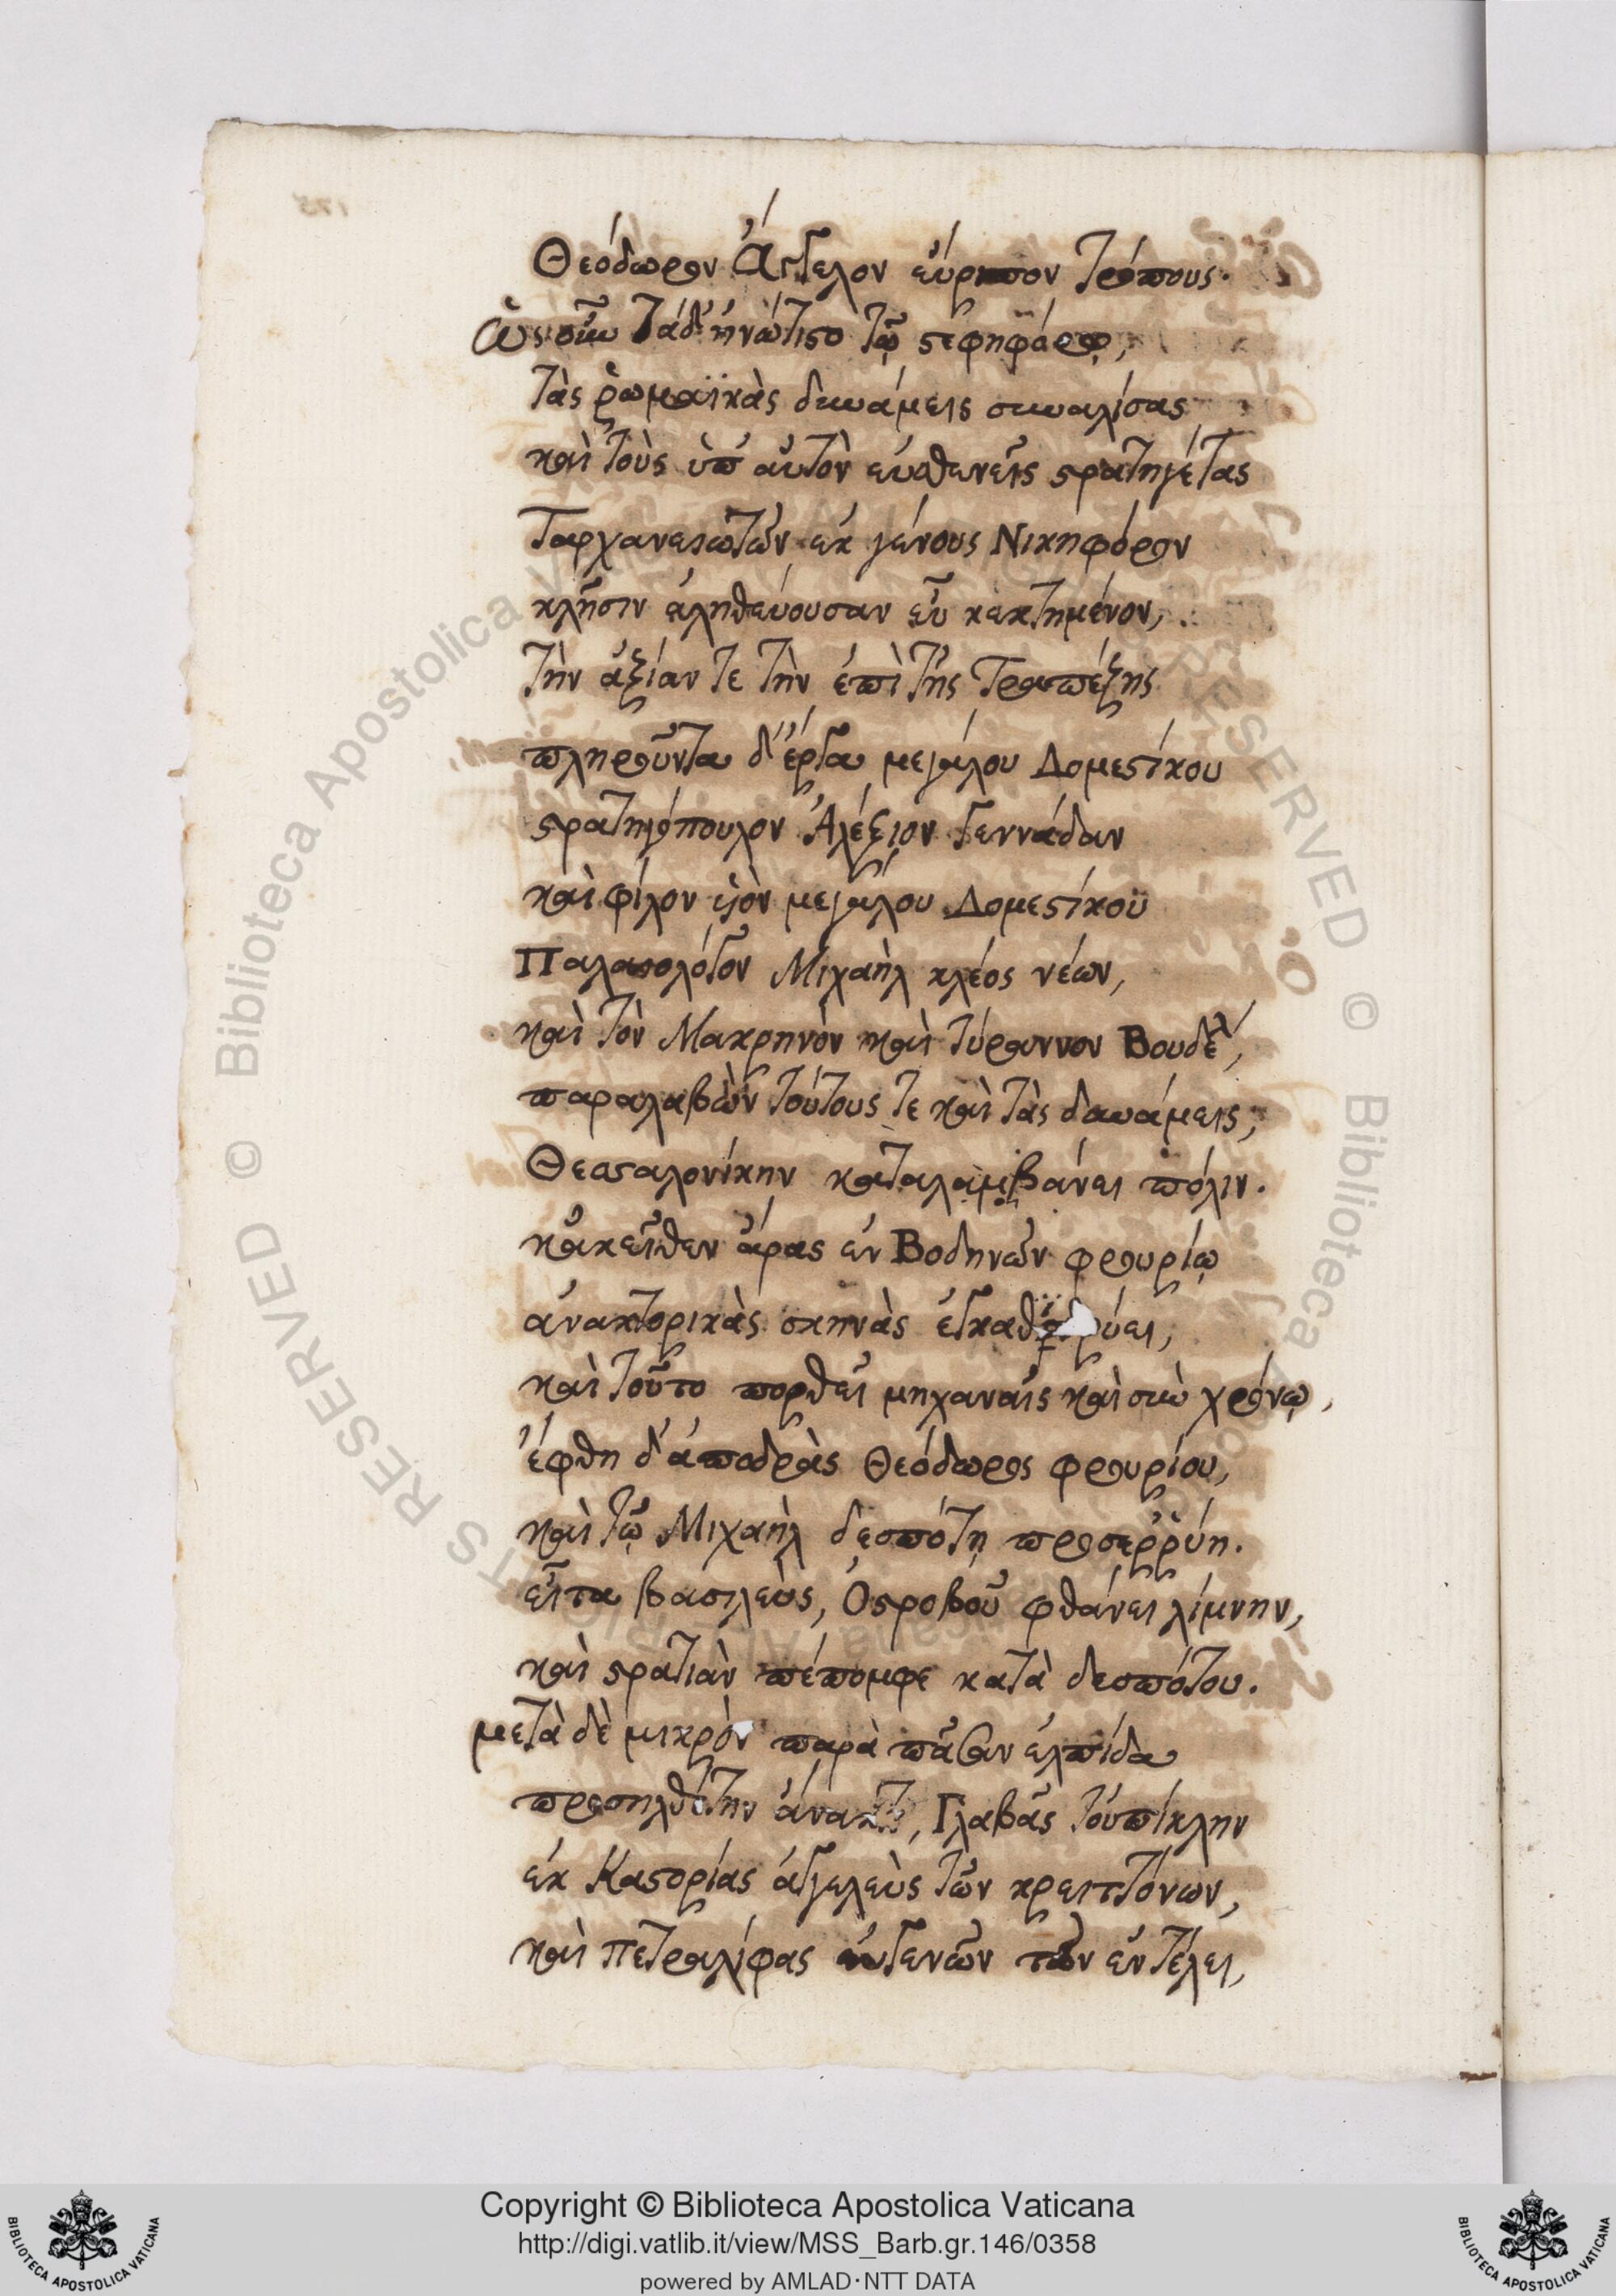 Θεόδωρον Ἄγγελον εὔριπον τρόπους.
Ὡς οὖν τάδ' ἠνώτιστο τῷ στεφηφόρῳ,
τὰς ῥωμαϊκὰς δυνάμεις συναλίσας
καὶ τοὺς ὑπ' αὐτὸν εὐσθενεῖς στρατηγέτας
Ταρχανειωτῶν ἐκ γένους Νικηφόρον
κλῆσιν ἀληθεύουσαν εὖ κεκτημένον,
τὴν ἀξίαν τε τὴν ἐπὶ τῆς Τραπέζης
πληροῦντα δ' ἔργα μεγάλου Δομεστίκου
στρατηγόπουλον Ἀλέξιον γεννάδαν
καὶ φίλον υἱὸν μεγάλου Δομεστίκου
Παλαιολόγον Μιχαὴλ κλέος νέων,
καὶ τὸν Μακρηνὸν καὶ τύραννον Βουδὲλ,
παραλαβὼν τούτους τε καὶ τὰς δυνάμεις,
Θεσσαλονίκην καταλαμβάνει πόλιν.
κἀκεῖθεν ἄρας ἐν Βοδηνῶν φρουρίῳ
ἀνακτορικὰς σκηνὰς ἐγκαθιδρύει,
καὶ τοῦτο πορθεῖ μηχαναῖς καὶ σὺν χρόνῳ,
ἔφθη δ' ἀποδρὰς Θεόδωρος φρουρίου,
καὶ τῷ Μιχαὴλ δεσπότῃ προσερρύη.
εἶτα βασιλεὺς, Ὀστροβοῦ φθάνει λίμνην,
καὶ στρατιὰν πέπομφε κατὰ δεσπότου.
μετὰ δὲ μικρὸν παρὰ πᾶσαν ἐλπίδα
προσηλθέτην ἄνακτι, Γλαβᾶς τοὐπίκλην
ἐκ Καστορίας ἀγγελεὺς τῶν κρειττόνων,
καὶ Πετραλίφας εὐγενῶν τῶν ἐν τέλει,
Copyright © Biblioteca Apostolica Vaticana
http://digi.vatlib.it/view/MSS_Barb.gr.146/0358
powered by AMLAD·NTT DATA